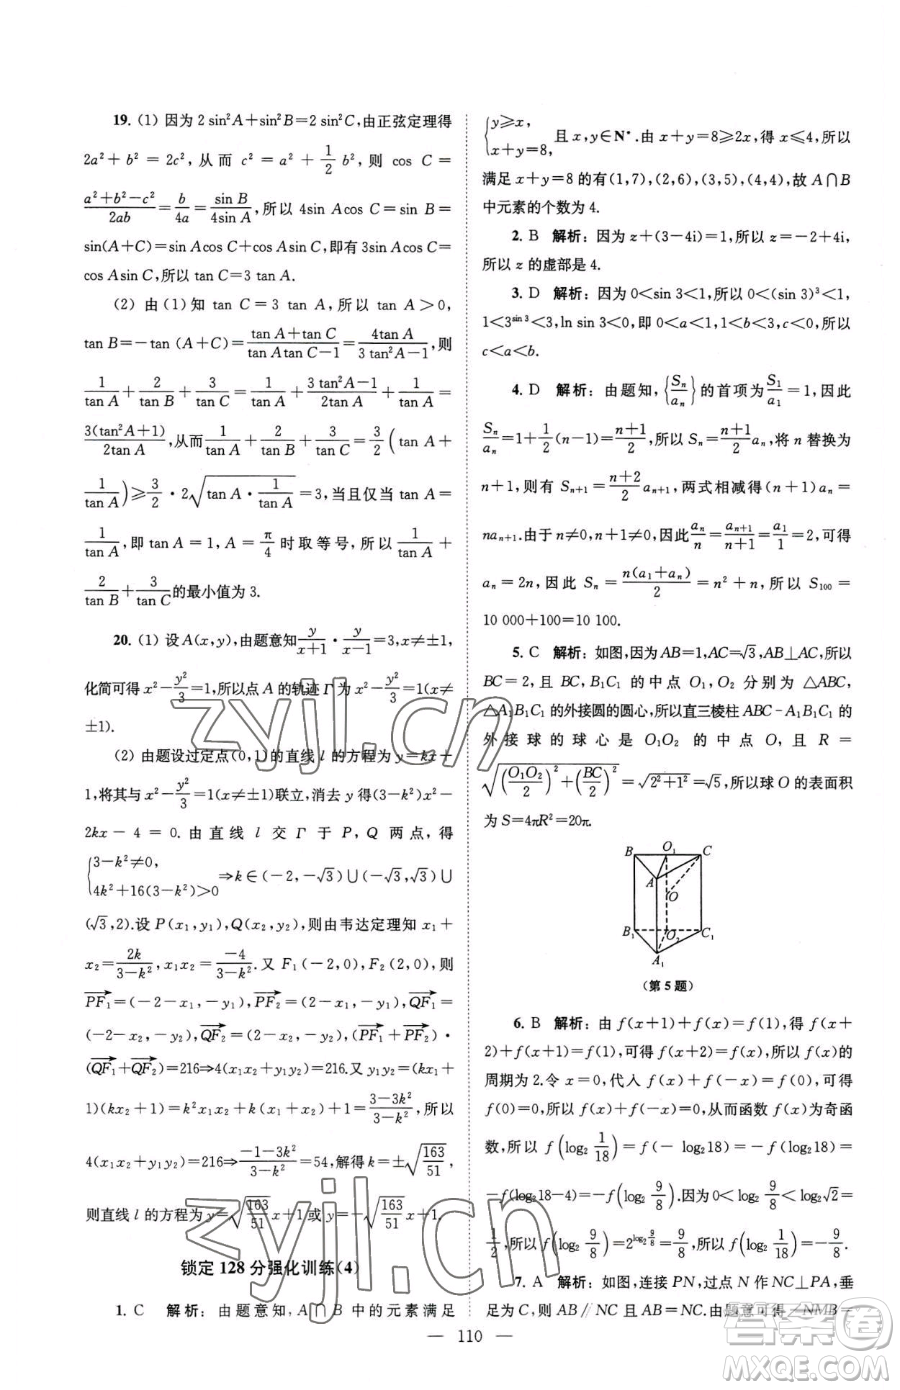 19. (1) 因为 2 sin²A+sin²B=2 sin²C,由正弦定理得
2a²+b²=2c²,从而 c²=a²+1/2 b²,则 cos C=
(a²+b²-c²)/2ab=b/4a=sin B/4sin A,所以 4sin Acos C=sin B=
sin(A+C)=sin Acos C+cos Asin C,即有 3sin Acos C=
cos Asin C,所以 tan C=3 tan A.
(2) 由(1)知 tan C=3 tan A,所以 tan A>0,
tan B=-tan (A+C)=(tan A+tan C)/(tan Atan C-1)=4tan A/(3 tan²A-1),则
1/tan A+2/tan B+3/tan C=1/tan A+(3 tan²A-1)/2tan A+1/tan A=
3(tan²A+1)/2tan A,从而1/tan A+2/tan B+3/tan C=3/2(tan A+
1/tan A)≥3/2·2√(tan A·1/tan A)=3,当且仅当 tan A=
1/tan A,即 tan A=1,A=π/4 时取等号,所以 1/tan A+
2/tan B+3/tan C的最小值为 3.
20. (1) 设 A(x,y),由题意知y/(x+1)·y/(x-1)=3,x≠±1,
化简可得 x²-y²/3=1,所以点 A 的轨迹 Γ 为 x²-y²/3=1(x≠
±1).
(2) 由题设过定点(0,1)的直线 l 的方程为 y=kx+
1,将其与 x²-y²/3=1(x≠±1)联立,消去 y 得(3-k²)x²-
2kx-4=0.由直线 l 交 Γ 于 P,Q 两点,得
{3-k²≠0, 4k²+16(3-k²)>0 ⇒k∈(-2,-√3)∪(-√3,√3)∪
(√3,2).设 P(x₁,y₁),Q(x₂,y₂),则由韦达定理知 x₁+
x₂=2k/(3-k²),x₁x₂=-4/(3-k²).又 F₁(-2,0),F₂(2,0),则
PF₁=(-2-x₁,-y₁),PF₂=(2-x₁,-y₁),QF₁=
(-2-x₂,-y₂),QF₂=(2-x₂,-y₂),(PF₁+PF₂)·
(QF₁+QF₂)=216⇒4(x₁x₂+y₁y₂)=216.又 y₁y₂=(kx₁+
1)(kx₂+1)=k²x₁x₂+k(x₁+x₂)+1=(3-3k²)/(3-k²),所以
4(x₁x₂+y₁y₂)=216⇒(-1-3k²)/(3-k²)=54,解得 k=±√(163/51),
则直线 l 的方程为 y=√(163/51)x+1或 y=-√(163/51)x+1.
锁定 128 分强化训练(4)
1. C 解析:由题意知,A∩B 中的元素满足
{y≥x, x+y=8, 且 x,y∈N*.由 x+y=8≥2x,得 x≤4,所以
满足 x+y=8 的有(1,7),(2,6),(3,5),(4,4),故 A∩B
中元素的个数为 4.
2. B 解析:因为 z+(3-4i)=1,所以 z=-2+4i,
所以 z 的虚部是 4.
3. D 解析:因为 0<sin 3<1,所以 0<(sin 3)³<1,
1<3^(sin 3)<3,ln sin 3<0,即 0<a<1,1<b<3,c<0,所以
c<a<b.
4. D 解析:由题知,{Sₙ/aₙ}的首项为S₁/a₁=1,因此
Sₙ/aₙ=1+1/2(n-1)=(n+1)/2,所以 Sₙ=(n+1)/2 aₙ,将 n 替换为
n+1,则有 Sₙ₊₁=(n+2)/2 aₙ₊₁,两式相减得(n+1)aₙ=
naₙ₊₁.由于 n≠0,n+1≠0,因此aₙ/n=aₙ₊₁/(n+1)=a₁/1=2,可得
aₙ=2n,因此 Sₙ=n(a₁+aₙ)/2=n²+n,所以 S₁₀₀=
10 000+100=10 100.
5. C 解析:如图,因为 AB=1,AC=√3,AB⊥AC,所以
BC=2,BC,B₁C₁ 的中点 O₁,O₂ 分别为 △ABC,
△A₁B₁C₁ 的外接圆的圆心,所以直三棱柱 ABC-A₁B₁C₁ 的
外接球的球心是 O₁O₂ 的中点 O,且 R=
√((O₁O₂/2)²+(BC/2)²)=√(2²+1²)=√5,所以球 O 的表面积
为 S=4πR²=20π.
B O₁ C
A
O
B₁ O₂ C₁
A₁
(第 5 题)
6. B 解析:由 f(x+1)+f(x)=f(1),得 f(x+
2)+f(x+1)=f(1),可得 f(x+2)=f(x),所以 f(x)的
周期为 2.令 x=0,代入 f(x)+f(-x)=f(0),可得
f(0)=0,所以 f(x)=-f(-x),从而函数 f(x)为奇函
数,所以 f(log₂ 1/18)=f(-log₂18)=-f(log₂18)=
-f(log₂18-4)=-f(log₂ 9/8).因为 0<log₂ 9/8<log₂√2=
1/2,所以 f(log₂ 9/8)=2^(log₂ 9/8)=9/8,所以 f(log₂ 1/18)=-9/8.
7. A 解析:如图,连接 PN,过点 N 作 NC⊥PA,垂
足为 C,所以 AB∥NC,AB=NC.由题意可得∠NMB=
110
zyjl.cn
zyjl.cn
答案圈
MXQE.COM